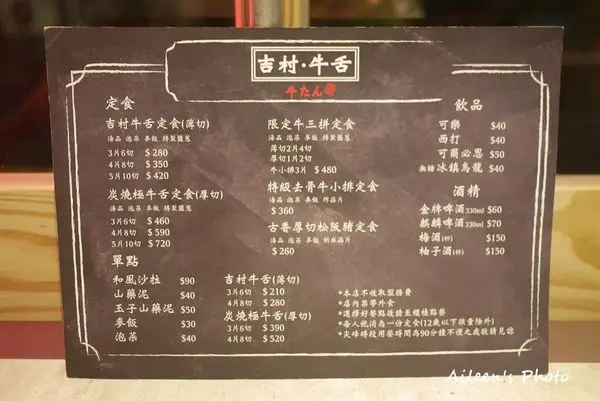 吉村·牛舌
牛たん
定食
吉村牛舌定食(薄切)
湯品 泡菜 麥飯 特製鹽蔥
3片6切 $ 280
4片8切 $ 350
5片10切 $ 420
炭燒極牛舌定食(厚切)
湯品 泡菜 麥飯 特製鹽蔥
3片6切 $ 460
4片8切 $ 590
5片10切 $ 720
單點
和風沙拉 $90
山藥泥 $40
玉子山藥泥 $50
麥飯 $30
泡菜 $40
限定牛三拼定食
湯品 泡菜 麥飯 特製鹽蔥
薄切2片4切
厚切1片2切
牛小排3片 $ 480
特級去骨牛小排定食
湯品 泡菜 麥飯 炸蒜片
$ 360
古早厚切松阪豬定食
湯品 泡菜 麥飯 胡麻蒜片
$ 260
吉村牛舌(薄切)
3片6切 $ 210
4片8切 $ 280
炭燒極牛舌(厚切)
3片6切 $ 390
4片8切 $ 520
飲品
可樂 $40
西打 $40
可爾必思 $50
無糖 冰鎮烏龍 $40
酒精
金牌啤酒330ml $60
麒麟啤酒330ml $70
梅酒(杯) $150
柚子酒(杯) $150
*本店不收取服務費
*店內禁帶外食
*選擇好餐點後請至櫃檯點餐
*每人低消為一份定食(12歲以下孩童除外)
*尖峰時段用餐時間為90分鐘不便之處敬請見諒
Aileen's Photo